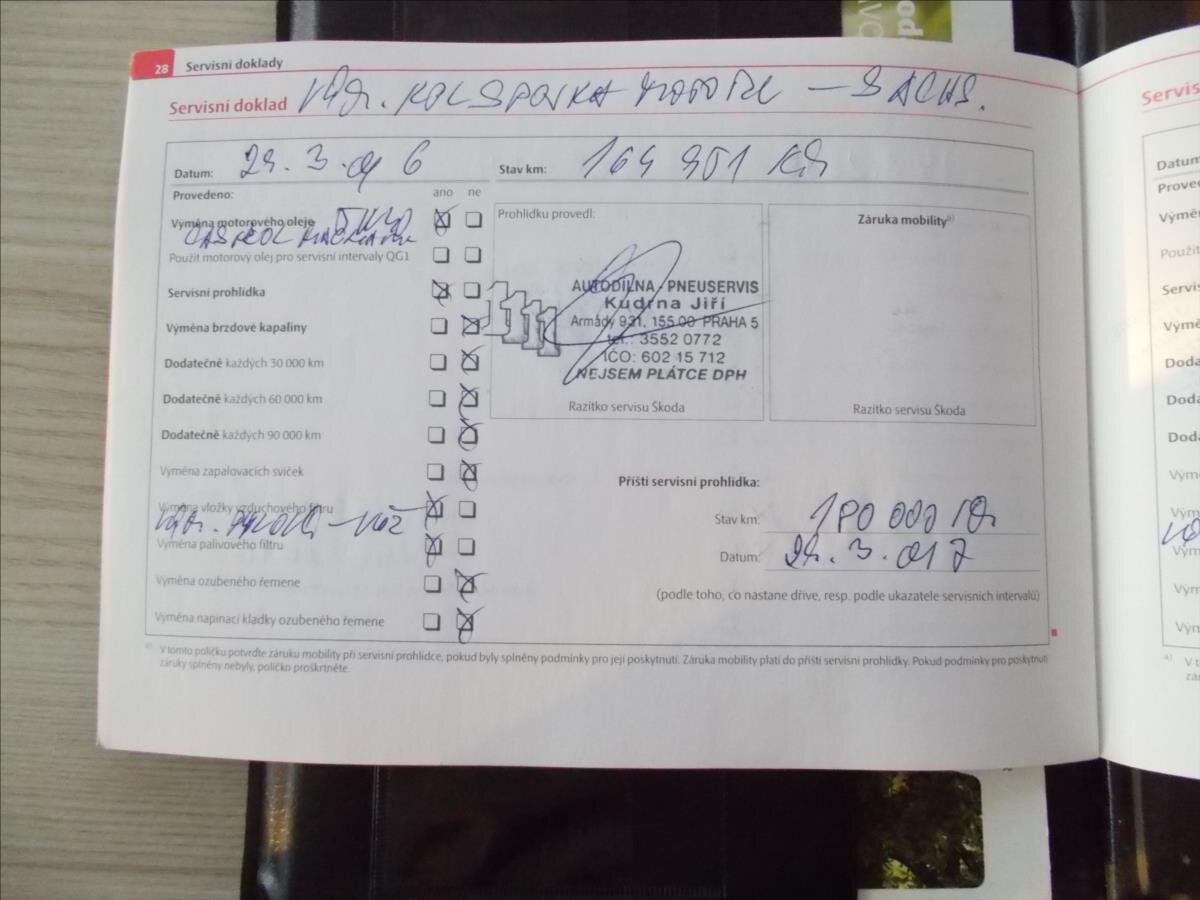 28 Servisní doklady
Servisní doklad
Datum:
Stav km: 164 901 km
Provedeno: ano ne
Výměna motorového oleje
CASTROL
Použit motorový olej pro servisní intervaly QG1
Servisní prohlídka
Výměna brzdové kapaliny
Dodatečně každých 30 000 km
Dodatečně každých 60 000 km
Dodatečně každých 90 000 km
Výměna zapalovacích svíček
Výměna vložky vzduchového filtru
Výměna palivového filtru
Výměna ozubeného řemene
Výměna napínací kladky ozubeného řemene
Prohlídku provedl:
AUTODÍLNA / PNEUSERVIS
Kudrna Jiří
Armády 931, 155 00 PRAHA 5
tel.: 3552 0772
IČO: 602 15 712
NEJSEM PLÁTCE DPH
Razítko servisu Škoda
Záruka mobility a)
Razítko servisu Škoda
Příští servisní prohlídka:
Stav km: 180 000 km
Datum:
(podle toho, co nastane dříve, resp. podle ukazatele servisních intervalů)
a) V tomto políčku potvrďte záruku mobility při servisní prohlídce, pokud byly splněny podmínky pro její poskytnutí. Záruka mobility platí do příští servisní prohlídky. Pokud podmínky pro poskytnutí
záruky splněny nebyly, políčko proškrtněte.
Servis
Datum
Prove
Výmě
Použit
Servis
Výmě
Doda
Doda
Doda
Vým
Vým
Vým
Vým
Vým
a) V t
zár